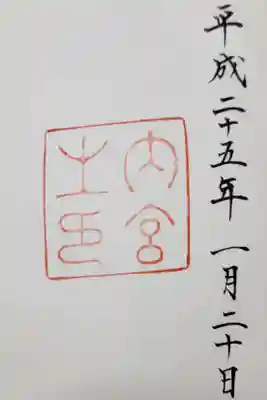 平成二十五年一月二十日
内宮
之印